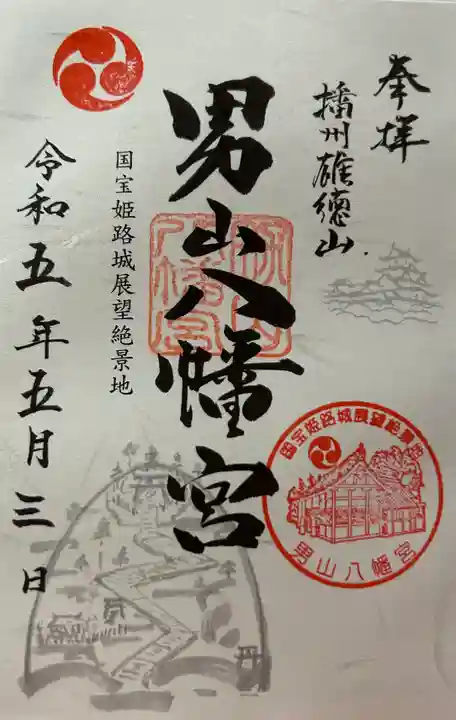 奉拝
播州雄德山
男山八幡宮
国宝姫路城展望絶景地
令和五年五月三日
国宝姫路城展望絶景地
男山八幡宮